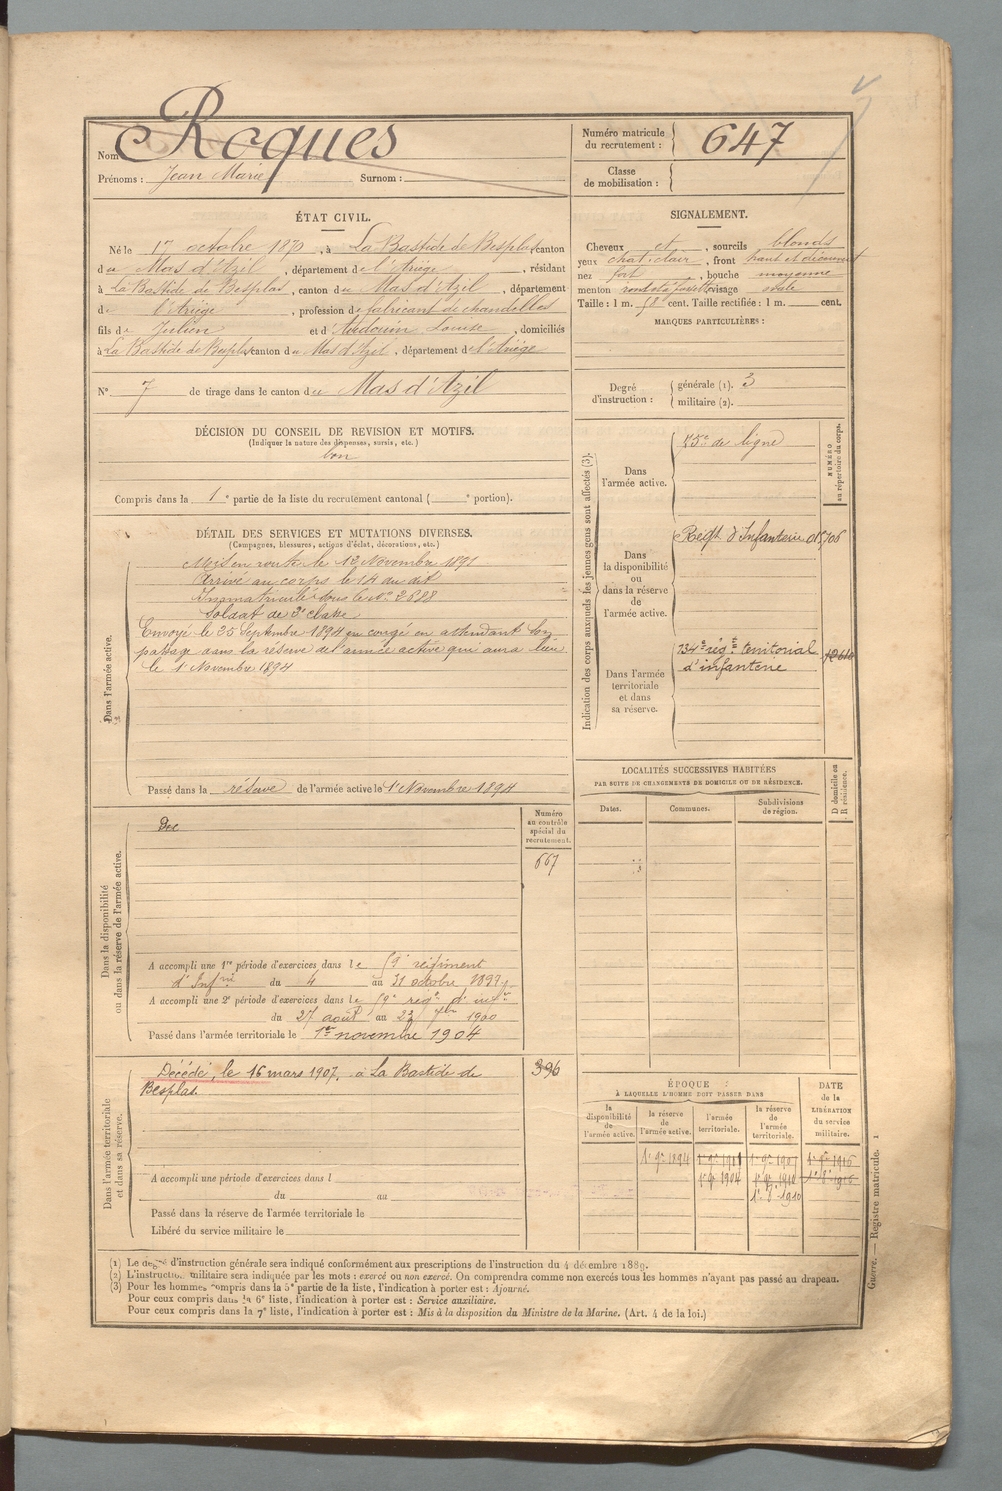 Nom Roques
Prénoms : Jean Marie Surnom :
Numéro matricule du recrutement : 647
Classe de mobilisation :
ÉTAT CIVIL.
Né le 17 octobre 1870, à La Bastide de Besplas, canton
du Mas d'Azil, département de l'Ariège, résidant
à La Bastide de Besplas, canton du Mas d'Azil, département
de l'Ariège, profession de fabricant de chandelles
fils de Julien et d'Audouin Louise, domiciliés
à La Bastide de Besplas, canton du Mas d'Azil, département de l'Ariège
SIGNALEMENT.
Cheveux et, sourcils blonds
yeux chat. clair, front haut et découvert
nez fort, bouche moyenne
menton rond et à fossette, visage ovale
Taille : 1 m. cent. Taille rectifiée : 1 m. cent.
MARQUES PARTICULIÈRES :
N° 7 de tirage dans le canton du Mas d'Azil
Degré d'instruction : générale (1). 3
militaire (2).
DÉCISION DU CONSEIL DE REVISION ET MOTIFS.
(Indiquer la nature des dispenses, sursis, etc.)
bon
Compris dans la 1e partie de la liste du recrutement cantonal ( e portion).
DÉTAIL DES SERVICES ET MUTATIONS DIVERSES.
(Campagnes, blessures, actions d'éclat, décorations, etc.)
Dans l'armée active.
Mis en route le 13 Novembre 1891
Arrivé au corps le 14 du dit
Immatriculé sous le no
Soldat de 2e classe
Envoyé le 25 Septembre 1894 en congé en attendant son
passage dans la réserve de l'armée active qui aura lieu
le 1 Novembre 1894
Passé dans la réserve de l'armée active le 1 Novembre 1894
Indication des corps auxquels les jeunes gens sont affectés (3).
NUMÉRO au répertoire du corps.
Dans l'armée active.
de ligne
Dans la disponibilité ou dans la réserve de l'armée active.
Regt d'Infanterie
Dans l'armée territoriale et dans sa réserve.
134e rég. nt territorial
d'infanterie
LOCALITÉS SUCCESSIVES HABITÉES
PAR SUITE DE CHANGEMENTS DE DOMICILE OU DE RÉSIDENCE.
Dates. Communes. Subdivisions de région. D domicile ou R résidence.
Dans la disponibilité ou dans la réserve de l'armée active.
Dec
Numéro au contrôle spécial du recrutement.
667
A accompli une 1re période d'exercices dans le régiment
d'Infrie du 4 au 31 octobre 1897.
A accompli une 2e période d'exercices dans le
du 27 août au 23 7bre 1900
Passé dans l'armée territoriale le 1er novembre 1904
Dans l'armée territoriale et dans sa réserve.
Décédé, le 16 mars 1907, à La Bastide de
Besplas.
396
A accompli une période d'exercices dans l
du au
Passé dans la réserve de l'armée territoriale le
Libéré du service militaire le
ÉPOQUE
À LAQUELLE L'HOMME DOIT PASSER DANS
la disponibilité de l'armée active.
la réserve de l'armée active.
l'armée territoriale.
la réserve de l'armée territoriale.
DATE de la LIBÉRATION du service militaire.
1r 9re 1894
1r 9re 1904
(1) Le degré d'instruction générale sera indiqué conformément aux prescriptions de l'instruction du 4 décembre 1889.
(2) L'instruction militaire sera indiquée par les mots : exercé ou non exercé. On comprendra comme non exercés tous les hommes n'ayant pas passé au drapeau.
(3) Pour les hommes compris dans la 5e partie de la liste, l'indication à porter est : Ajourné.
Pour ceux compris dans la 6e liste, l'indication à porter est : Service auxiliaire.
Pour ceux compris dans la 7e liste, l'indication à porter est : Mis à la disposition du Ministre de la Marine. (Art. 4 de la loi.)
Guerre. — Registre matricule. 1